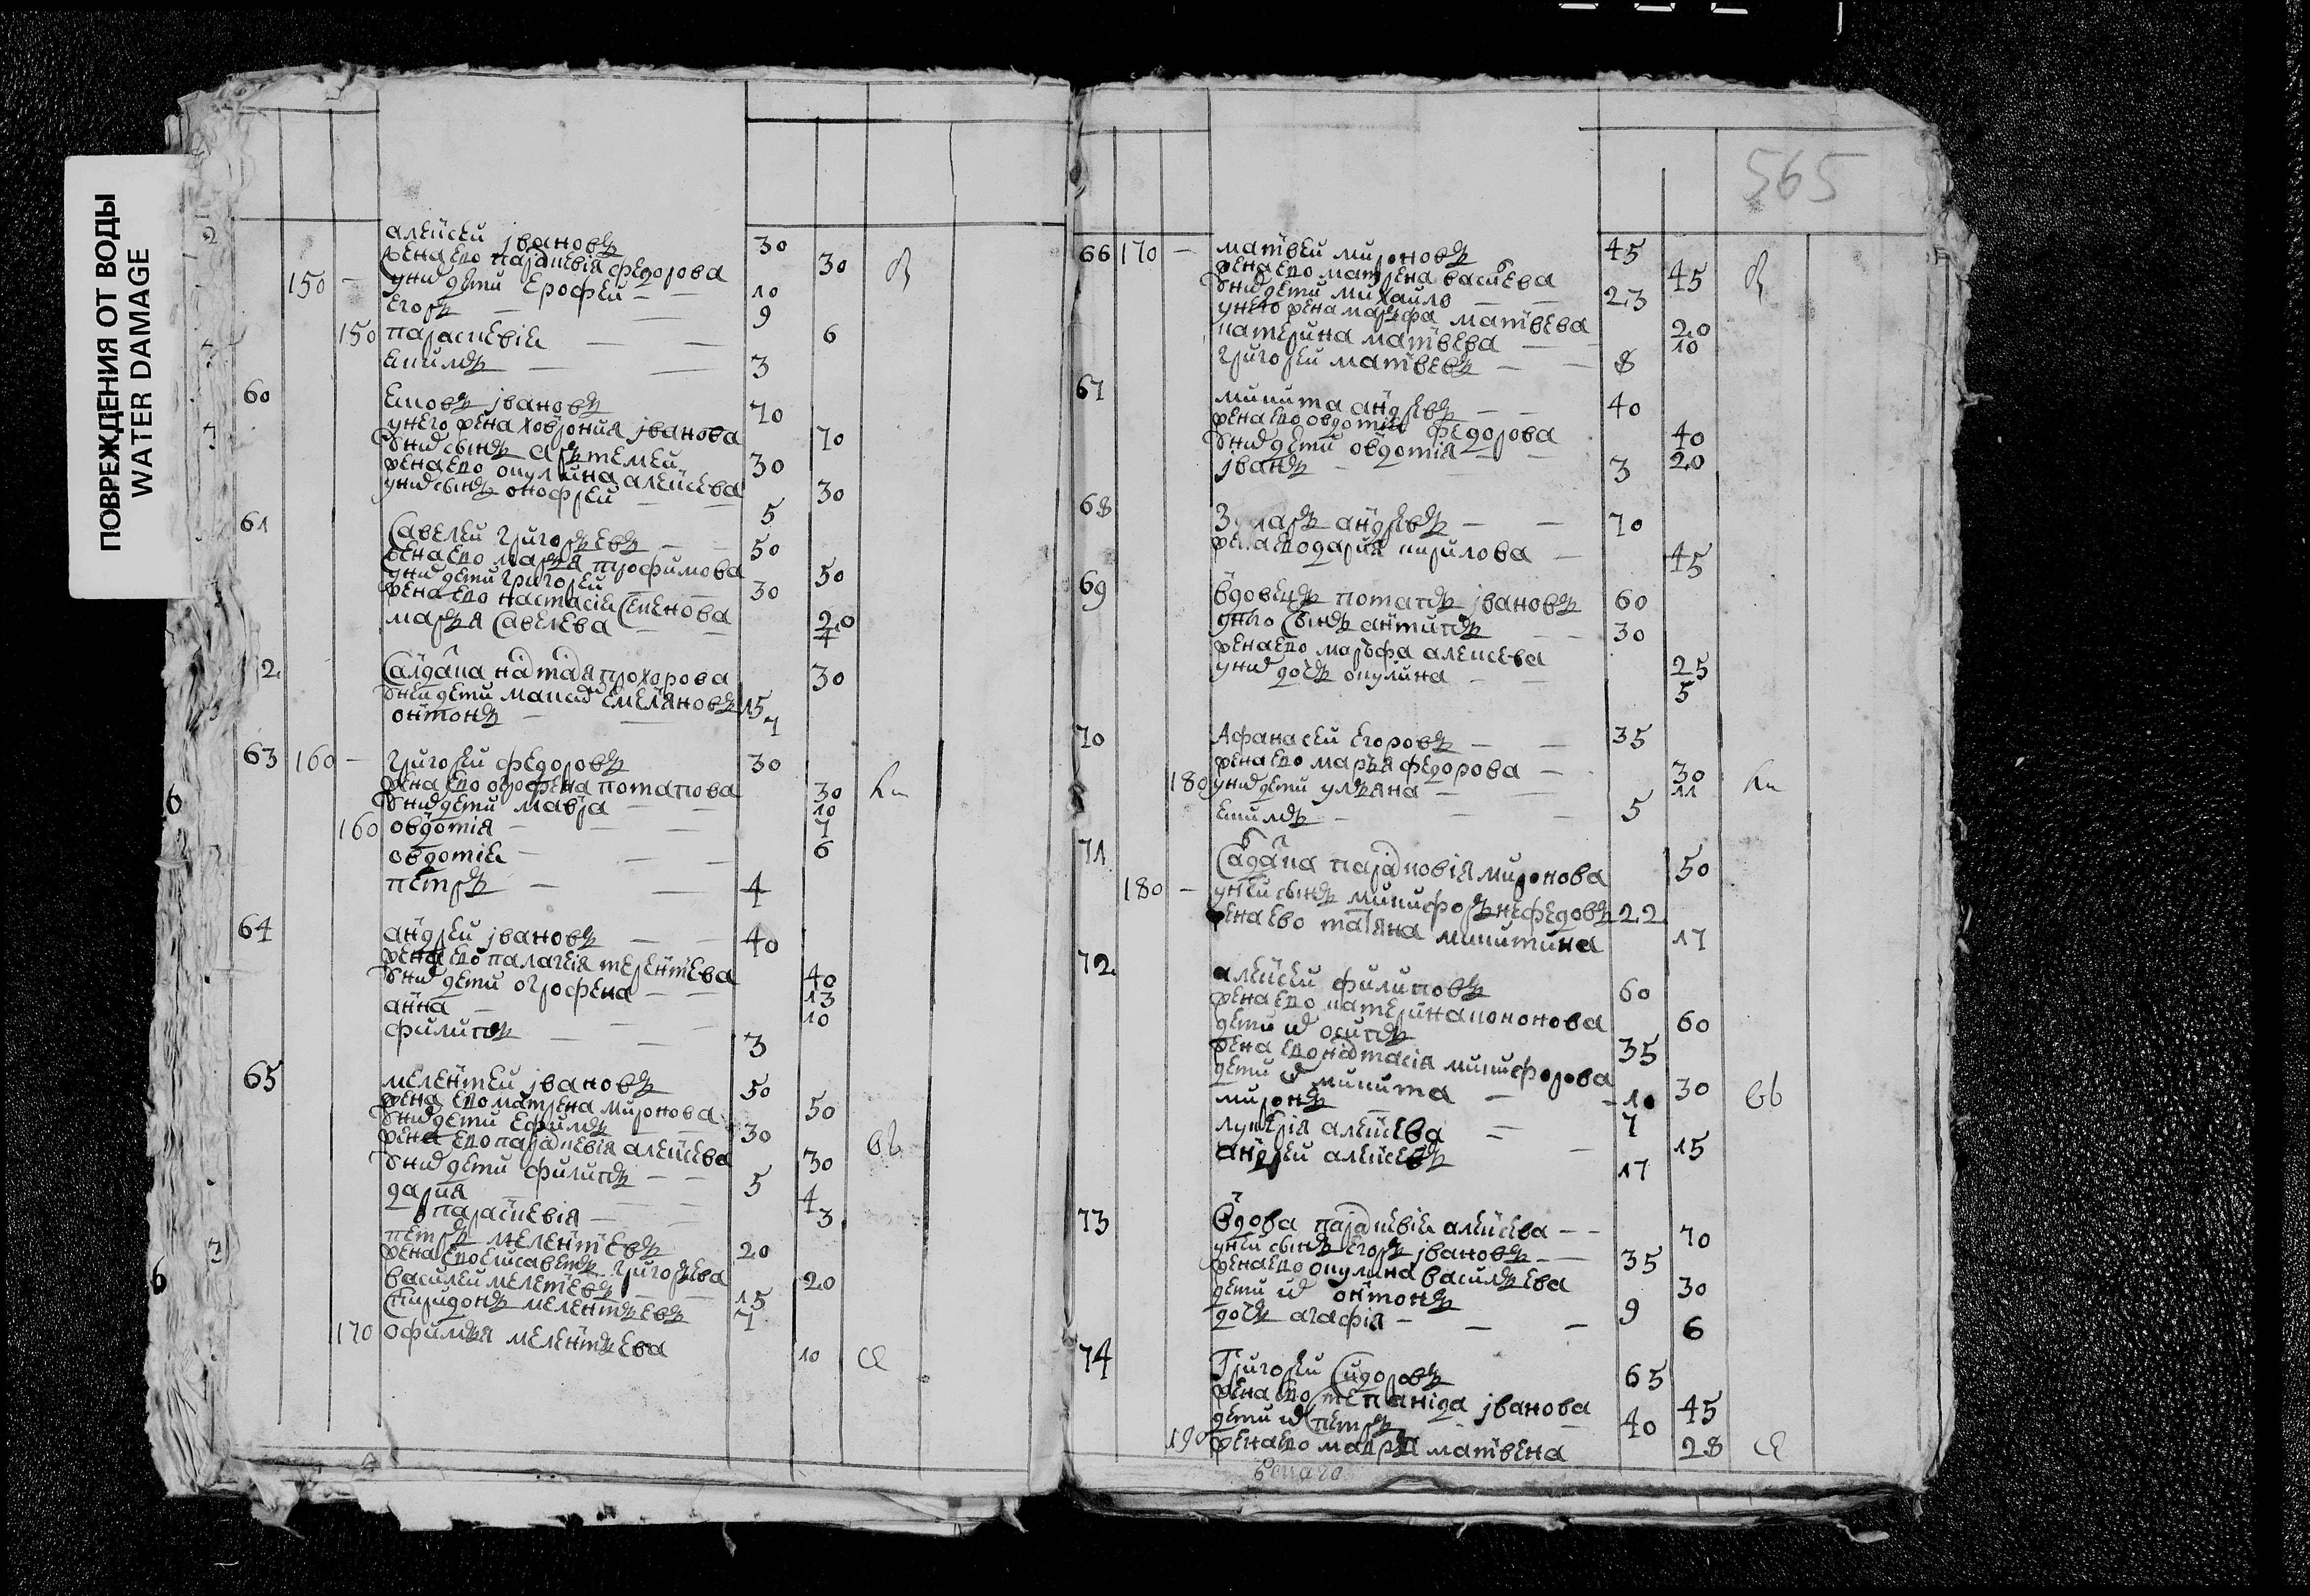 ПОВРЕЖДЕНИЯ ОТ ВОДЫ
WATER DAMAGE
565
алеѯеи јвановъ 30
жена ево параскевія федорова 30
150 — у них дети ерофеи — 10
егоръ — 9
150 параскевіѧ — — 6
екимъ — — 3
60 емовъ јвановъ 70
у него жена ховрония јванова 70
у них сынъ артемеи 30
жена ево окулина алексева 30
у них сынъ онофреи — 5
61 савелеи григорьевъ — 50
жена ево марья трофимова 50
у них дети григореи 30
жена ево настасіѧ семенова 20
марья савелева — 7
2 салдатка настасья прохорова 30
у неи дети макаръ емеляновъ 15
онтонъ — — 7
63 160 — григореи федоровъ 30
жена ево огрофена потапова 30
у них дети мавра — — 10
160 овдотия — — — 7
овдотиѧ — — — 6
петръ — — 4
64 андреи јвановъ — — 40
жена ево палагея терентева 40
у них дети огрофена — — 13
анна — 10
филипъ — — 3
65 мелентеи јвановъ 50
жена ево матрена миронова 50
у них дети ефимъ — 30
жена ево параскевія алексева 30
у них дети филипъ — — 5
дария — — 4
параскевія — — 3
петръ мелентевъ 20
жена ево елисаветъ григорьева 20
василеи мелетевъ — 15
спиридонъ мелентьевъ 7
170 офимья мелентьева 10
66 170 — матвеи мироновъ 45
жена ево матрена васильева 45
у них дети михаило — — 23
у него жена марфа матвева 20
катерина матвева — — 10
григореи матвевъ — — 8
67 никита андревъ — — 40
жена ево овдотия федорова 40
у них дети овдотия — — 20
јванъ — 3
68 андревъ — — 70
жена ево дария кирилова — 45
69 вдовецъ потапъ јвановъ 60
у него сынъ антипъ — — 30
жена ево марфа алексева 25
у них дочь окулина — — 5
70 Афанасеи егоровъ — — 35
жена ево марья федорова — 30
180 у них дети ульяна — — 11
екимъ — — — 5
71 салдатка парасковія миронова 50
180 — у неи сынъ никифоръ нефедовъ 22
жена ево татяна никитина 17
72 алексеи филиповъ 60
жена ево катерина кононова 60
дети их осипъ 35
жена ево настасія никифорова 30
дети их никита — 10
миронъ — 7
лукерія алексева — 15
андреи алексевъ — 17
73 вдова параскевіѧ алексева — — 70
у неи сынъ егоръ јвановъ — 35
жена ево окулина васильева 30
дети их онтонъ 9
дочь агафія — — — 6
74 Григореи сидоровъ 65
жена ево степанида јванова 45
дети их петръ — 40
190 жена ево марья матвевна 28